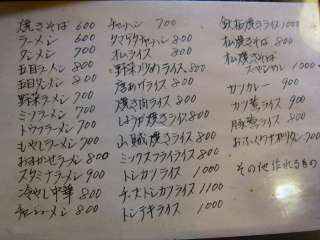 焼きそば 600
ラーメン 600
タンメン 700
五目ラーメン 800
五目タンメン 800
野菜ラーメン 700
ミソラーメン 700
トウフラーメン 700
もやしラーメン 700
おまかせラーメン 800
スタミナラーメン 900
冷やし中華 800
チャーシューメン 800
チャーハン 700
カマタマチャーハン 800
オムライス 800
野菜いためライス 800
唐あげライス 800
焼き肉ライス 800
しょうが焼きライス 800
山賊焼きライス 800
ミックスフライライス 800
トンカツライス 1000
チーズトンカツライス 1100
トンテキライス 1000
鉄板焼きライス 1000
松焼きそば 800
松焼きそば
スペシャル 1000
カツカレー 900
カツ丼ライス 900
豚丼ライス 800
おふくろナポリタン 700
その他作れるもの